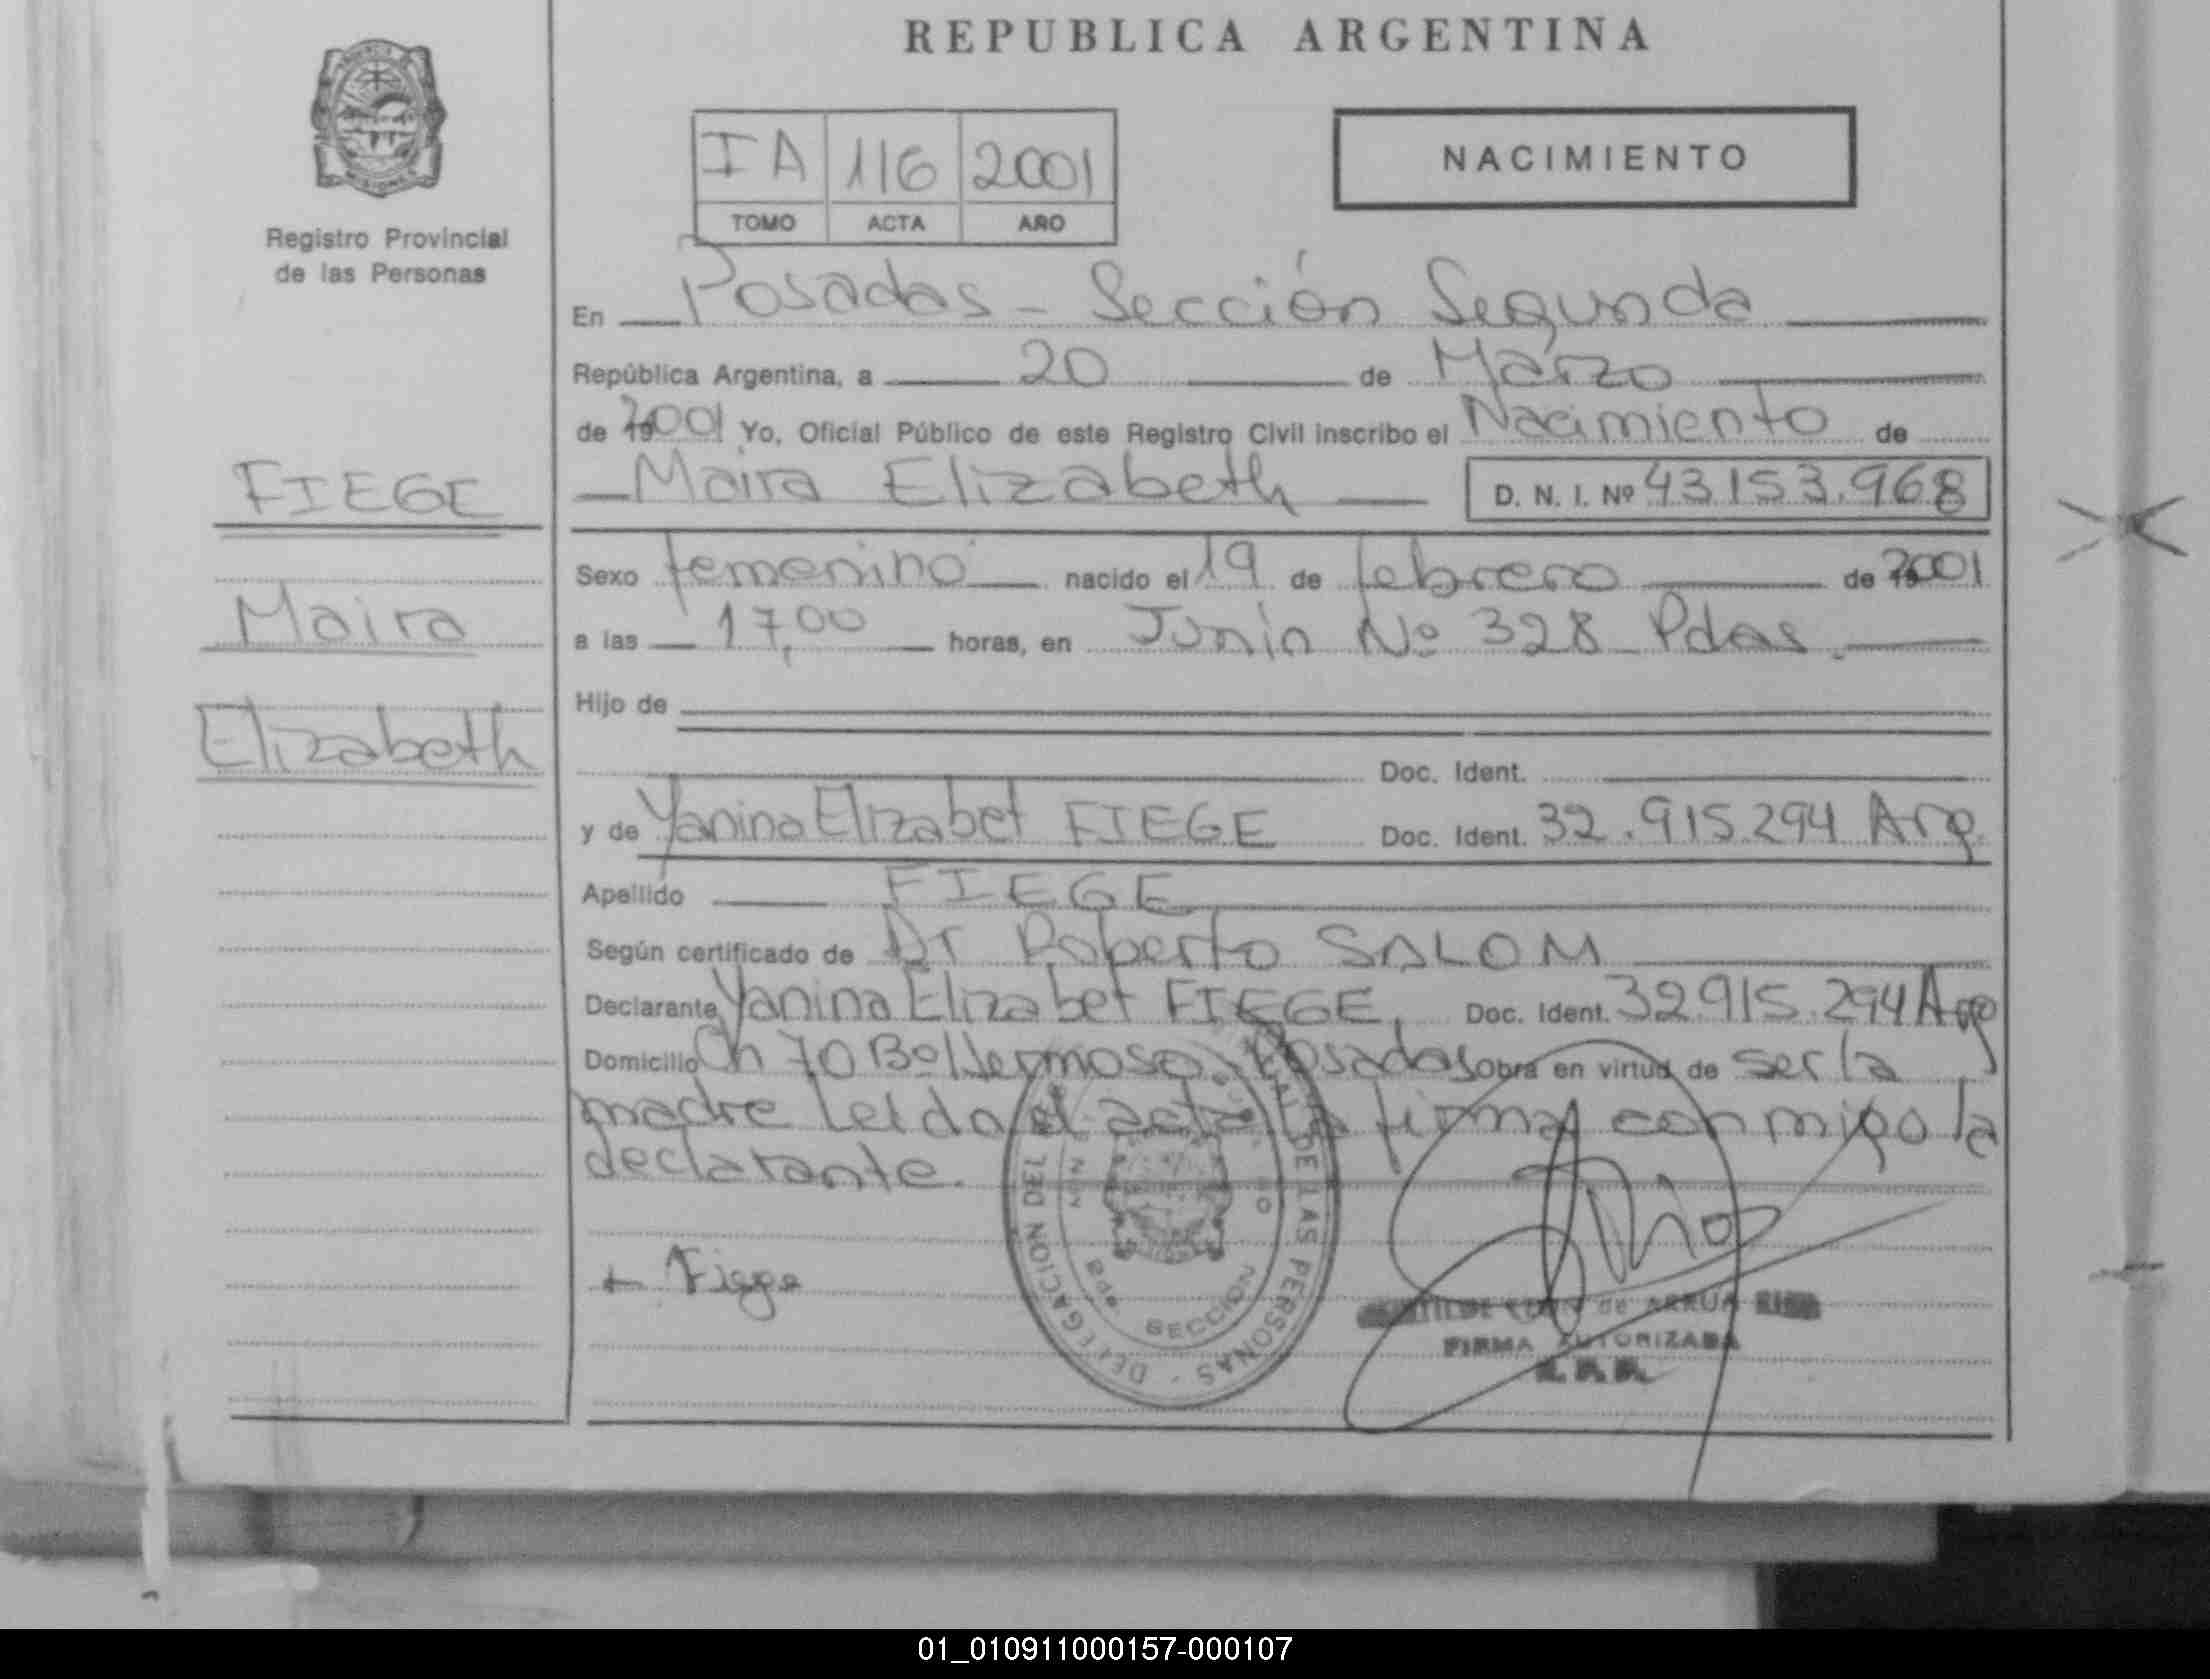 REPUBLICA ARGENTINA
MISIONES
Registro Provincial
de las Personas
IA 116 2001
TOMO ACTA AÑO
NACIMIENTO
En Posadas - Sección Segunda
República Argentina, a 20 de Marzo
de 2001 Yo, Oficial Público de este Registro Civil inscribo el Nacimiento de
Maira Elizabeth D. N. I. Nº 43.153.968
FIEGE
Maira
Elizabeth
Sexo femenino nacido el 19 de febrero de 2001
a las 17,00 horas, en Junin Nº 328 Pdas.
Hijo de
Doc. Ident.
y de Yanina Elizabet FIEGE Doc. Ident. 32.915.294 Arg.
Apellido FIEGE
Según certificado de Dr Roberto SALOM
Declarante Yanina Elizabet FIEGE, Doc. Ident. 32.915.294 Arg
Domicilio Ch 70 Bº Hermoso. Posadas obra en virtud de ser la
madre Leida el acta la firma conmigo la
declarante.
+ Fiege
DELEGACION DEL DE LAS PERSONAS
SECCION 2da
de ARRUA
FIRMA AUTORIZADA
01_010911000157-000107